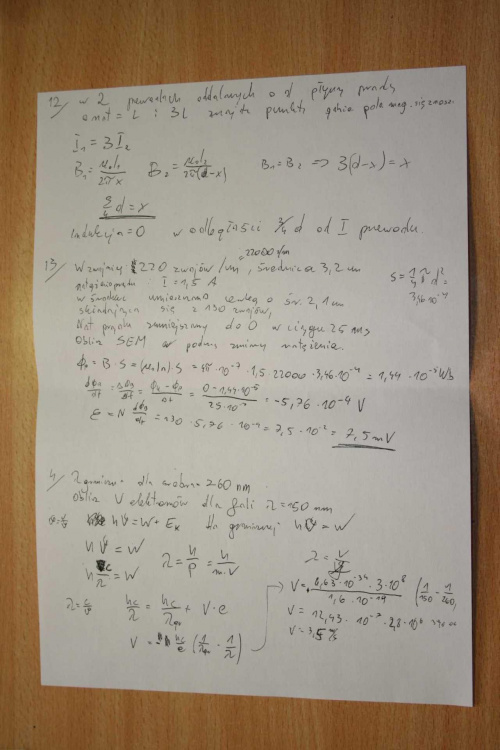 12/ w 2 przewodach oddalonych o d płyną prądy
o nat = I i 3I znajdź punkty gdzie pole mag. się znosi.
I₁ = 3I₂
B₁ = μ₀I₁/2πx B₂ = μ₀I₂/2π(d-x) B₁ = B₂ => 3(d-x) = x
3/4 d = x
Indukcja = 0 w odległości 3/4 d od I przewodu.
22000 z/m
13/ W zwojnicy 220 zwojów/cm, średnica 3,2 cm
natężenie prądu I = 1,5 A
w środku umieszczono cewkę o śr. 2,1 cm
składającą się z 130 zwojów,
Nat prądu zmniejszamy do 0 w ciągu 25 ms
Oblicz SEM w podczas zmiany natężenia.
S = 1/4 π d² =
3,46·10⁻⁴
Φ₁ = B · S = (μ₀In)·S = 4π·10⁻⁷ · 1,5 · 22000 · 3,46·10⁻⁴ = 1,44 · 10⁻⁵ Wb
= 0 - 1,44·10⁻⁵ / 25·10⁻³ = -5,76 · 10⁻⁴ V
ε = N = 130 · 5,76 · 10⁻⁴ = 7,5 · 10⁻² = 7,5 mV
4/ λ graniczna dla srebra = 260 nm
Oblicz V elektronów dla fali λ = 150 nm
hν = W + Eₖ dla granicznej hν = W
hν = W λ = h/p = h/m·v
hc/λ = W
hc/λ = hc/λgr + V·e
V = hc/e (1/λgr - 1/λ)
V = 6,63·10⁻³⁴ · 3·10⁸ / 1,6·10⁻¹⁹ (1/150 - 1/260)
V = 12,43 · 10⁻⁷ · 2,8 · 10⁶
V = 3,5